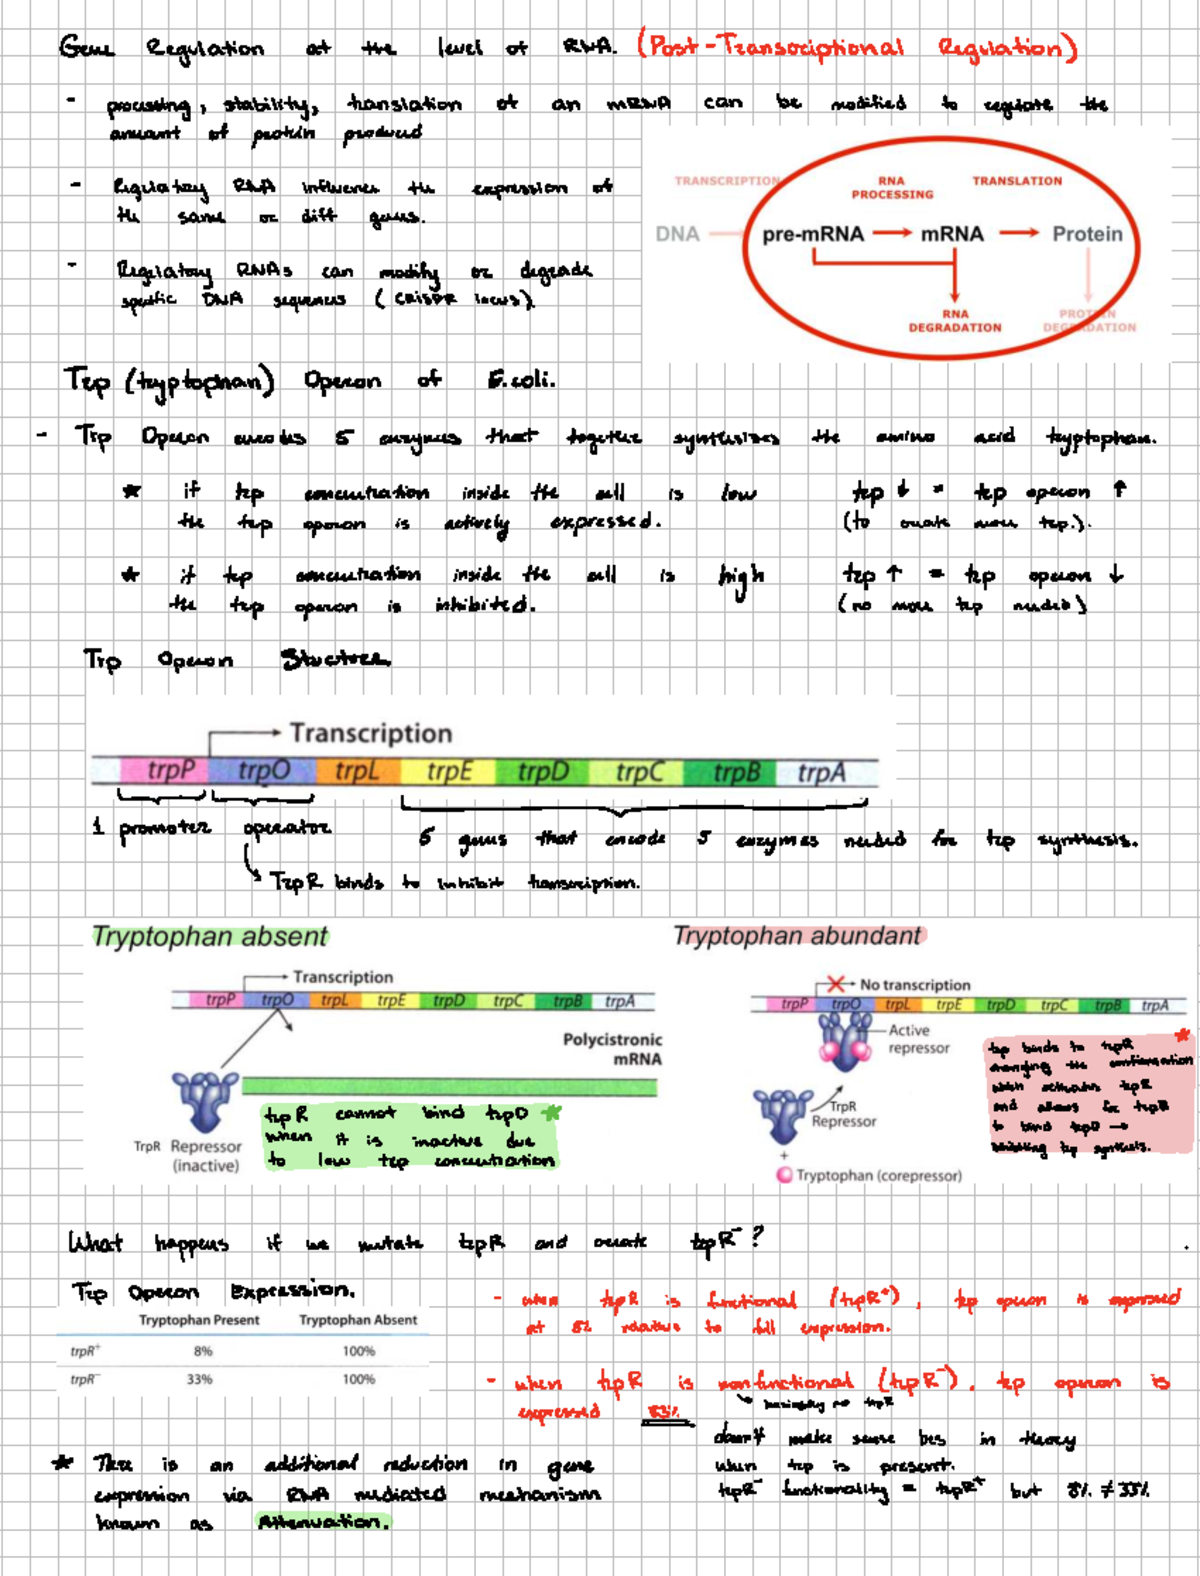 Gene Regulation at the level of RNA. (Post-Transcriptional Regulation)
- processing, stability, translation of an mRNA can be modified to regulate the
amount of protein produced
- Regulatory RNA influences the expression of
the same or diff genes.
- Regulatory RNAs can modify or degrade
specific DNA sequences (CRISPR locus)
TRANSCRIPTION
RNA PROCESSING
TRANSLATION
DNA
pre-mRNA
mRNA
Protein
RNA DEGRADATION
PROTEIN DEGRADATION
Trp (tryptophan) Operon of E.coli.
- Trp Operon encodes 5 enzymes that together synthesizes the amino acid tryptophan.
* if trp concentration inside the cell is low
the trp operon is actively expressed.
trp ↓ = trp operon ↑
(to create more trp.).
* if trp concentration inside the cell is high
the trp operon is inhibited.
trp ↑ = trp operon ↓
(no more trp needed)
Trp Operon Structure.
Transcription
trpP trpO trpL trpE trpD trpC trpB trpA
1 promoter operator
5 genes that encode 5 enzymes needed for trp synthesis.
TrpR binds to inhibit transcription.
Tryptophan absent
Transcription
trpP trpO trpL trpE trpD trpC trpB trpA
Polycistronic
mRNA
TrpR Repressor
(inactive)
trpR cannot bind trpO *
when it is inactive due
to low trp concentration
Tryptophan abundant
No transcription
trpP trpO trpL trpE trpD trpC trpB trpA
Active
repressor
TrpR
Repressor
+
Tryptophan (corepressor)
*
trp binds to trpR
changing the
which activates trpR
and allows for trpR
to bind trpO →
inhibiting trp synthesis.
What happens if we mutate trpR and create trpR⁻?
Trp Operon Expression.
Tryptophan Present Tryptophan Absent
trpR⁺ 8% 100%
trpR⁻ 33% 100%
- when trpR is functional (trpR⁺), trp operon is expressed
at 8% relative to full expression.
- when trpR is nonfunctional (trpR⁻), trp operon is
expressed 33%
basically no trpR
doesn't make sense bcs in theory
when trp is present.
trpR⁻ functionality = trpR⁺ but 8% ≠ 33%
* There is an additional reduction in gene
expression via RNA mediated mechanism
known as Attenuation.